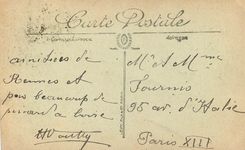 Carte Postale
Correspondance
Adresse
amitiées de
Rennes et
pas beaucoup de
à
Mr et Mme
Fournis
95 av. d'Italie
Paris XIII